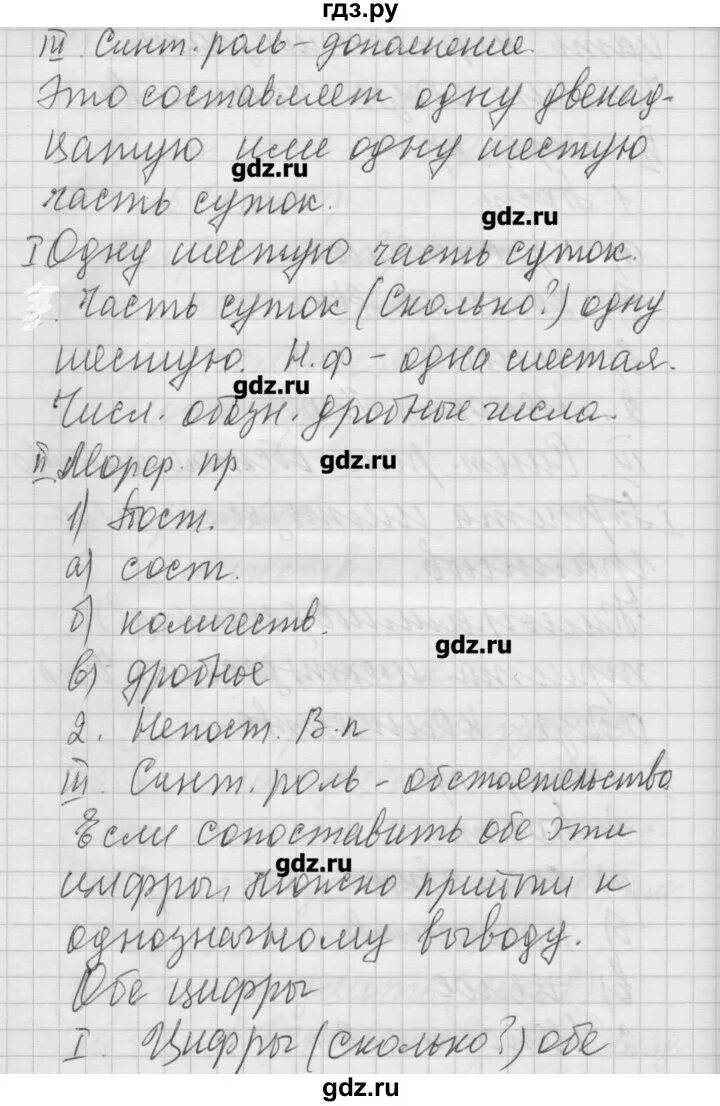 гдз.ру
III. Синт. роль - дополнение.
Это составляет одну двенад-
цатую или одну шестую
gdz.ru
часть суток.
gdz.ru
I Одну шестую часть суток.
Часть суток (Сколько?) одну
шестую. Н.ф - одна шестая.
gdz.ru
Числ. обозн. дробные числа.
II Морф. пр
gdz.ru
1) Пост.
а) сост.
б) количеств.
gdz.ru
в) дробное
2. Непост. В.п
III. Синт. роль - обстоятельство
Если сопоставить обе эти
gdz.ru
цифры, можно прийти к
однозначному выводу.
Обе цифры
I. Цифры (сколько?) обе
gdz.ru